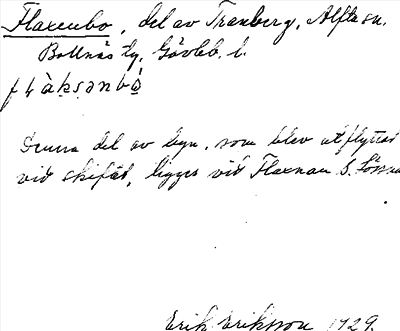 Flaxenbo, del av Tranberg, Alfta sn.
Bollnäs tg, Gävleb. l.
flàksənbó
Denna del av byn, som blev utflyttad
vid skifte, ligger vid Flaxnan S. Lössn
Erik Eriksson 1929.